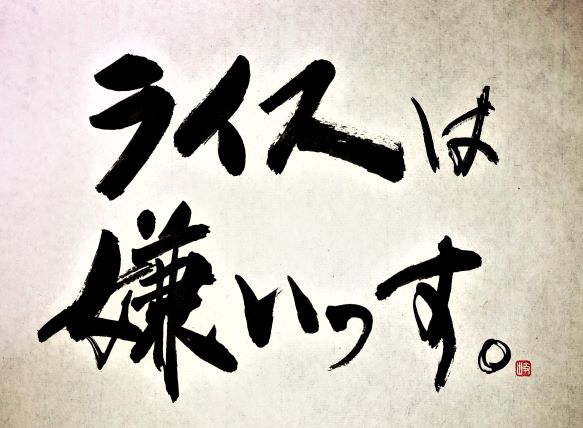 ライスは
嫌いっす。